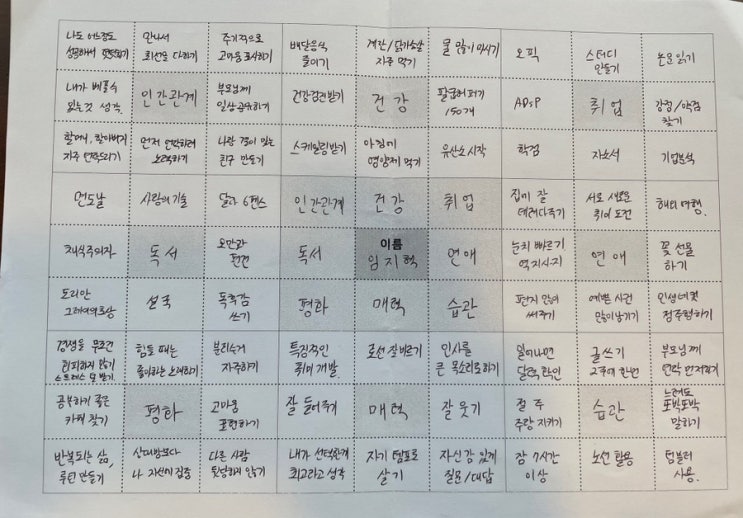 나도 어느정도
성공해서 떳떳하기
만나서
최선을 다하기
주기적으로
고마움 표시하기
배달음식
줄이기
계란/닭가슴살
자주 먹기
물 많이 마시기
오픽
스터디
만들기
논문 읽기
내가 베풀 수
있는 것 생각
인간관계
부모님께
일상공유하기
건강검진받기
건강
팔굽혀펴기
150개
ADsP
취업
강점/약점
찾기
할머니, 할아버지
자주 연락드리기
먼저 연락하려
노력하기
나랑 결이 맞는
친구 만들기
스케일링받기
아침에
영양제 먹기
유산소 시작
학점
자소서
기업분석
면도날
사랑의 기술
달과 6펜스
인간관계
건강
취업
집에 잘
데려다주기
서로 새로운
취미 도전
해외 여행
채식주의자
독서
오만과
편견
독서
이름
임지혁
연애
눈치 빠르기
역지사지
연애
꽃 선물
하기
도리안
그레이의 초상
설국
독후감
쓰기
평화
매력
습관
편지 많이
써주기
예쁜 사진
많이 남기기
인생네컷
정주행하기
경쟁을 무조건
회피하지 않기
스트레스 덜 받기
힘들 때는
좋아하는 노래하기
분리수거
자주하기
특징적인
취미 개발
로션 잘 바르기
인사를
큰 목소리로 하기
일어나면
달력 확인
글쓰기
2주에 한번
부모님께
연락 먼저하기
공부하기 좋은
카페 찾기
평화
고마움
표현하기
잘 들어주기
매력
잘 웃기
절주
주량 지키기
습관
느려도
또박또박
말하기
반복되는 삶,
루틴 만들기
상대방보다
나 자신에 집중
다른 사람
헐뜯지 않기
내가 선택한게
최고라고 생각
자기 템포로
살기
자신감 있게
질문/대답
잠 7시간
이상
노션 활용
텀블러
사용